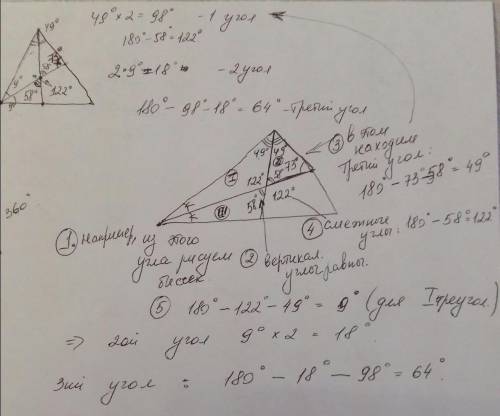 49° × 2 = 98° - 1 угол
180° - 58° = 122°
2 · 9° = 18° - 2 угол
180° - 98 - 18° = 64° - третий угол
49°
73°
58°
9°
9°
58°
122°
360°
49°
49°
II
73°
58°
I
122°
122°
58°
III
③ в этом
находим
третий угол:
180° - 73° - 58° = 49°
④ смежные
углы: 180° - 58° = 122°
①. Например, из этого
угла рисуем
биссек.
② вертикал.
углы равны.
⑤ 180° - 122° - 49° = 9° (для I треугол.)
⇒ 2ой угол 9° × 2 = 18°.
3ий угол : 180° - 18° - 98° = 64°.